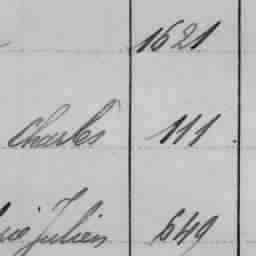 1621
Charles 111
Julien 649